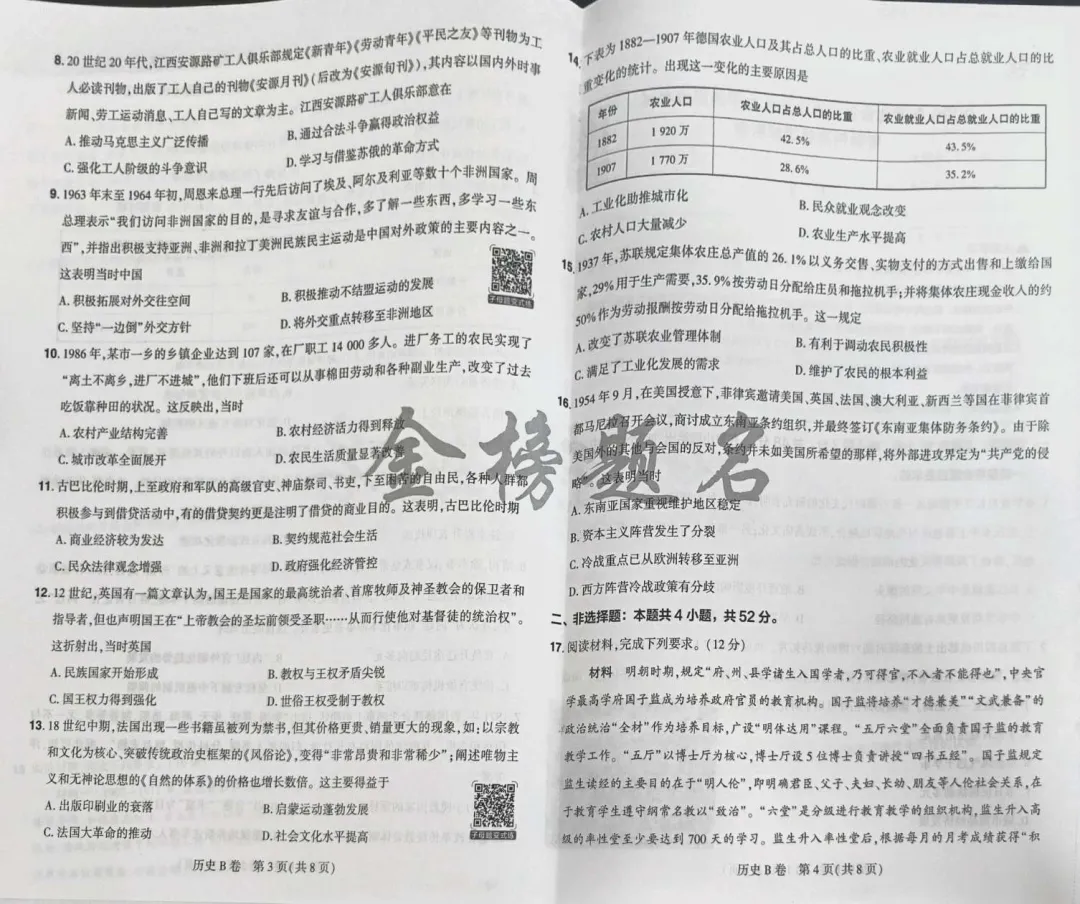 8. 20世纪20年代,江西安源路矿工人俱乐部规定《新青年》《劳动青年》《平民之友》等刊物为工
人必读刊物,出版了工人自己的刊物《安源月刊》(后改为《安源旬刊》),其内容以国内外时事
新闻、劳工运动消息、工人自己写的文章为主。江西安源路矿工人俱乐部意在
A. 推动马克思主义广泛传播 B. 通过合法斗争赢得政治权益
C. 强化工人阶级的斗争意识 D. 学习与借鉴苏俄的革命方式
9. 1963年末至1964年初,周恩来总理一行先后访问了埃及、阿尔及利亚等数十个非洲国家。周
总理表示“我们访问非洲国家的目的,是寻求友谊与合作,多了解一些东西,多学习一些东
西”,并指出积极支持亚洲、非洲和拉丁美洲民族民主运动是中国对外政策的主要内容之一。
这表明当时中国
A. 积极拓展对外交往空间 B. 积极推动不结盟运动的发展
C. 坚持“一边倒”外交方针 D. 将外交重点转移至非洲地区
子母题变式练
10. 1986年,某市一乡的乡镇企业达到107家,在厂职工14 000多人。进厂务工的农民实现了
“离土不离乡,进厂不进城”,他们下班后还可以从事棉田劳动和各种副业生产,改变了过去
吃饭靠种田的状况。这反映出,当时
A. 农村产业结构完善 B. 农村经济活力得到释放
C. 城市改革全面展开 D. 农民生活质量显著改善
11. 古巴比伦时期,上至政府和军队的高级官吏、神庙祭司、书吏,下至困苦的自由民,各种人群都
积极参与到借贷活动中,有的借贷契约更是注明了借贷的商业目的。这表明,古巴比伦时期
A. 商业经济较为发达 B. 契约规范社会生活
C. 民众法律观念增强 D. 政府强化经济管控
12. 12世纪,英国有一篇文章认为,国王是国家的最高统治者、首席牧师及神圣教会的保卫者和
指导者,但也声明国王在“上帝教会的圣坛前领受圣职……从而行使他对基督徒的统治权”。
这折射出,当时英国
A. 民族国家开始形成 B. 教权与王权矛盾尖锐
C. 国王权力得到强化 D. 世俗王权受制于教权
13. 18世纪中期,法国出现一些书籍虽被列为禁书,但其价格更贵、销量更大的现象,如;以宗教
和文化为核心、突破传统的政治史框架的《风俗论》,变得“非常昂贵和非常稀少”;阐述唯物主
义和无神论思想的《自然的体系》的价格也增长数倍。这主要得益于
A. 出版印刷业的衰落 B. 启蒙运动蓬勃发展
C. 法国大革命的推动 D. 社会文化水平提高
子母题变式练
历史B卷 第3页(共8页)
14. 下表为1882—1907年德国农业人口及其占总人口的比重、农业就业人口占总就业人口的比
重变化的统计。出现这一变化的主要原因是
年份 农业人口 农业人口占总人口的比重 农业就业人口占总就业人口的比重
1882 1 920万 42.5% 43.5%
1907 1 770万 28.6% 35.2%
A. 工业化助推城市化 B. 民众就业观念改变
C. 农村人口大量减少 D. 农业生产水平提高
15. 1937年,苏联规定集体农庄总产值的26.1%以义务交售、实物支付的方式出售和上缴给国
家,29%用于生产需要,35.9%按劳动日分配给庄员和拖拉机手;并将集体农庄现金收入的约
50%作为劳动报酬按劳动日分配给拖拉机手。这一规定
A. 改变了苏联农业管理体制 B. 有利于调动农民积极性
C. 满足了工业化发展的需求 D. 维护了农民的根本利益
16. 1954年9月,在美国授意下,菲律宾邀请美国、英国、法国、澳大利亚、新西兰等国在菲律宾首
都马尼拉召开会议,商讨成立东南亚条约组织,并最终签订《东南亚集体防务条约》。由于除
美国外的其他与会国的反对,条约并未如美国所希望的那样,将外部进攻界定为“共产党的侵
略”。这表明当时
A. 东南亚国家重视维护地区稳定
B. 资本主义阵营发生了分裂
C. 冷战重点已从欧洲转移至亚洲
D. 西方阵营冷战政策有分歧
二、非选择题:本题共4小题,共52分。
17. 阅读材料,完成下列要求。(12分)
材料 明朝时期,规定“府、州、县学诸生入国学者,乃可得官,不入者不能得也”,中央官
学最高学府国子监成为培养政府官员的教育机构。国子监将培养“才德兼美”“文武兼备”的
政治统治“全材”作为培养目标,广设“明体达用”课程。“五厅六堂”全面负责国子监的教育
教学工作。“五厅”以博士厅为核心,博士厅设5位博士负责讲授“四书五经”。国子监规定
监生读书的主要目的在于“明人伦”,即明确君臣、父子、夫妇、长幼、朋友等人伦社会关系,在
于教育学生遵守纲常名教以“致治”。“六堂”是分级进行教育教学的组织机构,监生升入高
级的率性堂至少要达到700天的学习。监生升入率性堂后,根据每月的月考成绩获得“积
历史B卷 第4页(共8页)
金榜题名